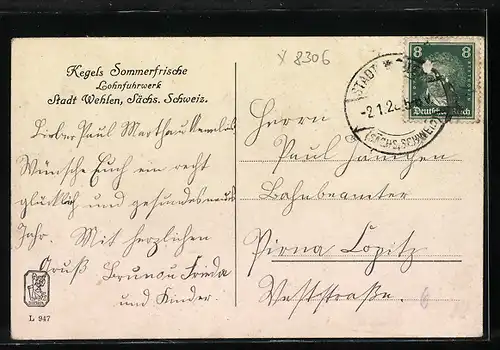 x 8306
Kegels Sommerfrische
Lohnfuhrwerk
Stadt Wehlen, Sächs. Schweiz.
8 8
Deutsches Reich
STADT
-2.1.2
(SÄCHS.SCHWEIZ)
Lieber Paul Martha u.
Wünsche Euch ein recht
glücklich und gesundes neues
Jahr. Mit herzlichen
Gruß Bruno u Frieda
und Kinder.
Herrn
Paul
Bahnbeamter
Pirna Copitz
Weststraße.
L 947